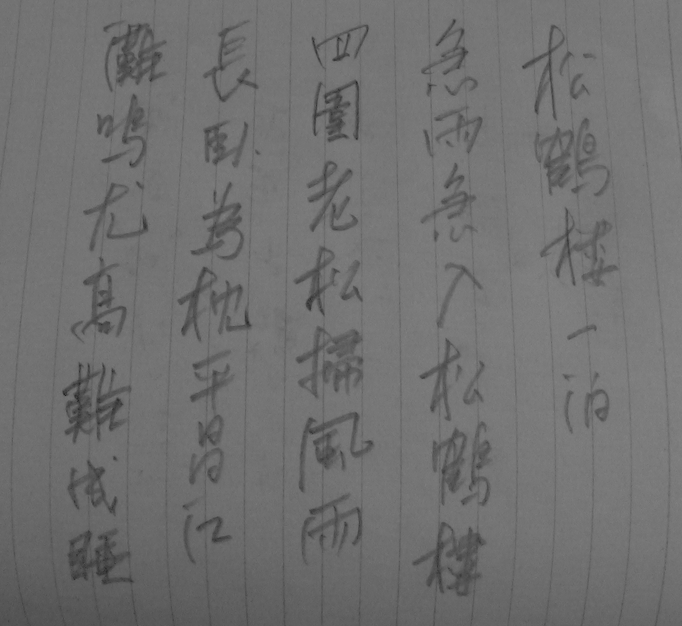 松鶴楼一泊
急雨急入松鶴樓
四圍老松掃風雨
長臥為枕平昌江
灘鳴尤高難成睡